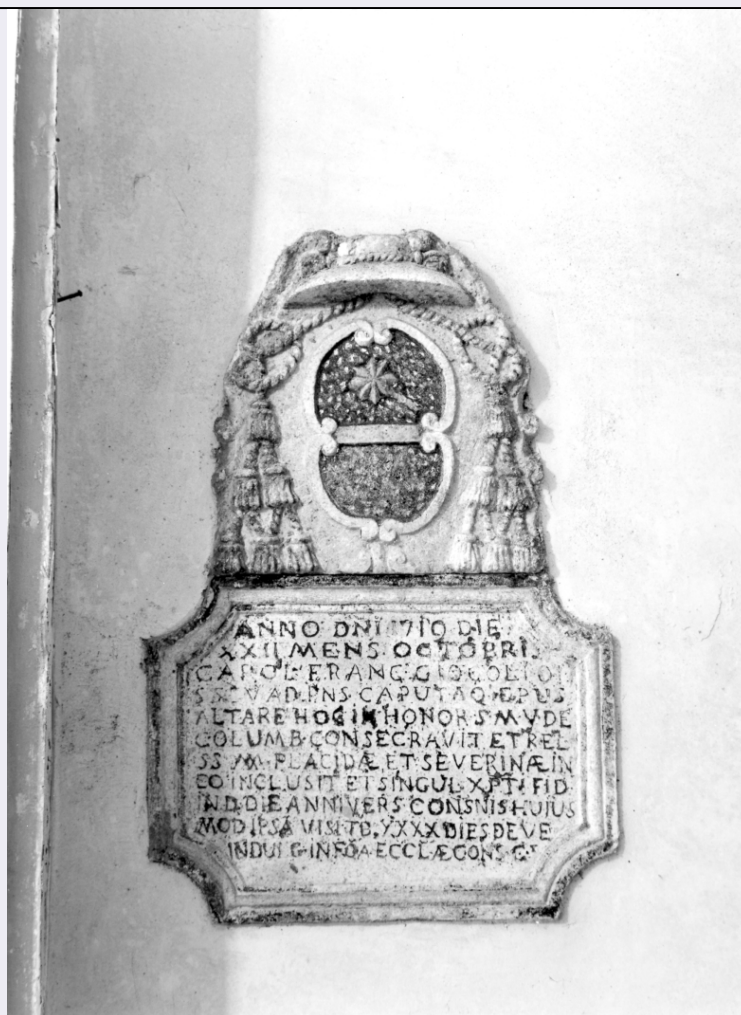 ANNO DNI 1710 DIE
XXII MENS OCTOBRIS
CAROL FRANC GIOCOLI
AD PNS CAPUTAQ EPUS
ALTARE HOC IN HONOR S M V DE
COLUMB CONSECRAVIT ET REL
SS MM PLACIDÆ ET SEVERINÆ IN
EO INCLUSIT ET SINGUL XPTI FID
IN D DIE ANNIVERS CONSNIS HUIUS
MOD IPSA VISITB XXXX DIES DE VE
INDULG IN FOA ECCLÆ CONS